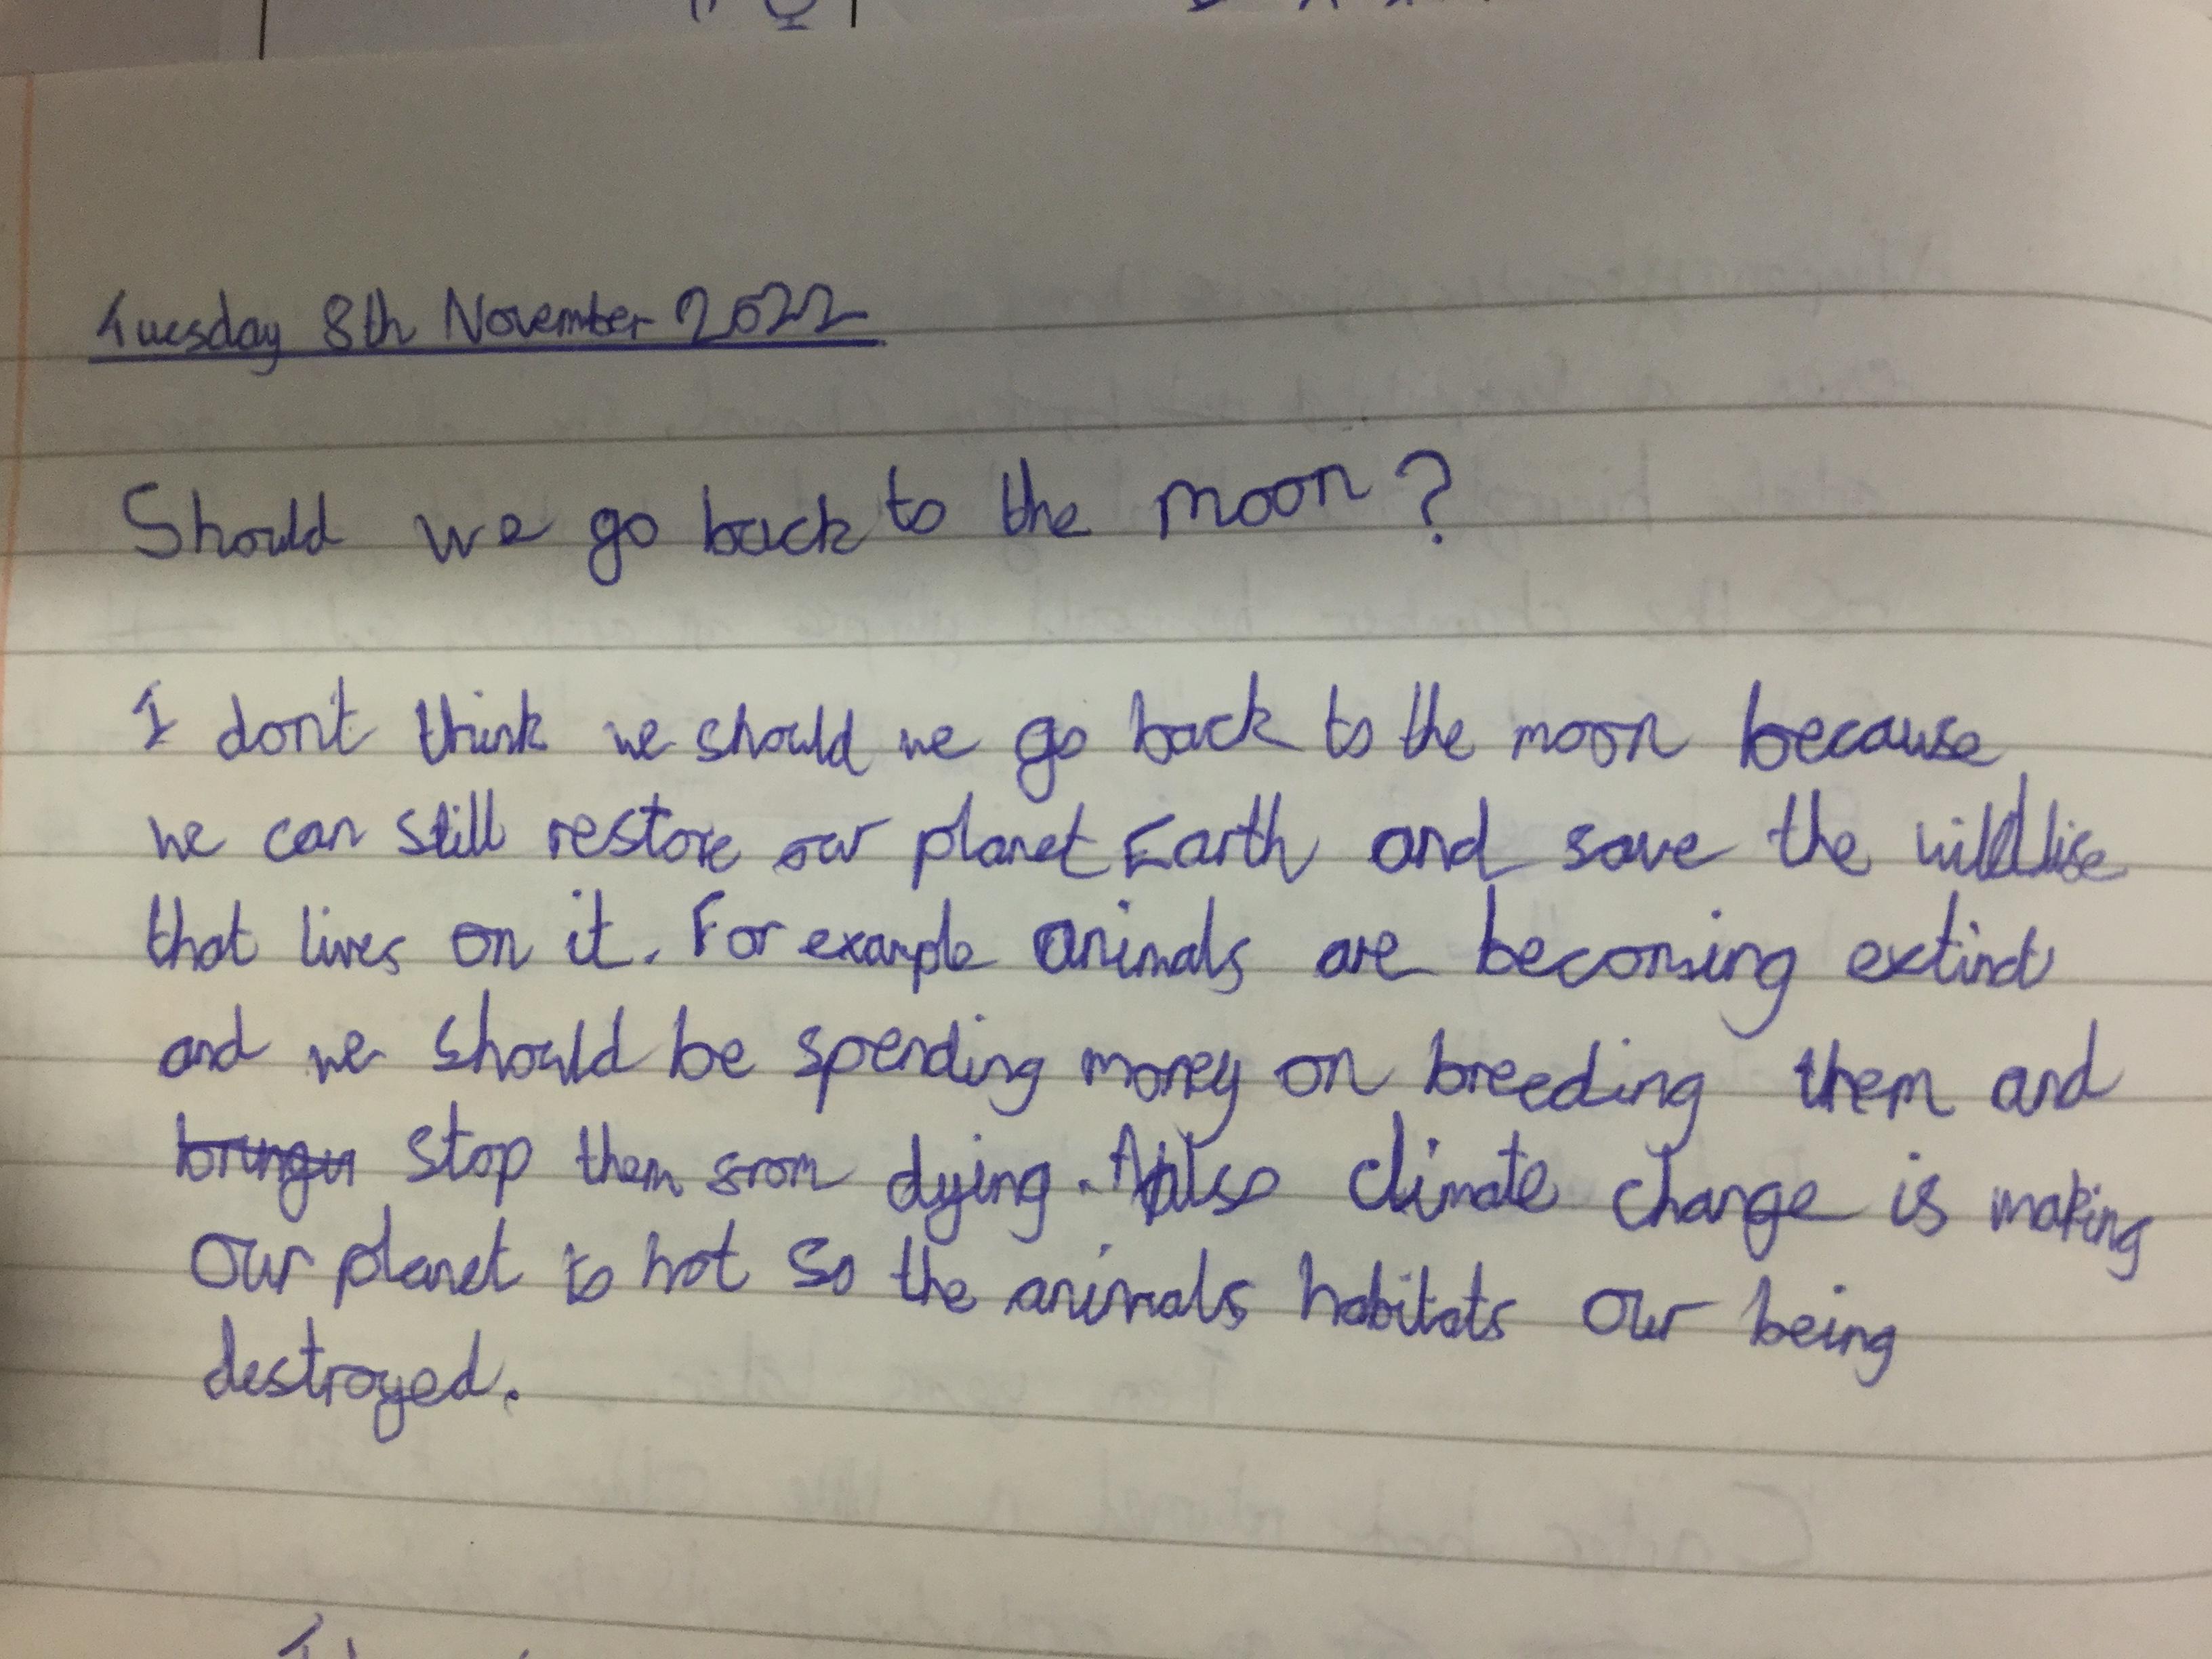 Tuesday 8th November 2022
Should we go back to the moon?
I don't think we should we go back to the moon because
we can still restore our planet Earth and save the wildlife
that lives on it. For example animals are becoming extinct
and we should be spending money on breeding them and
stop them from dying. Also climate change is making
our planet to hot so the animals habitats our being
destroyed.